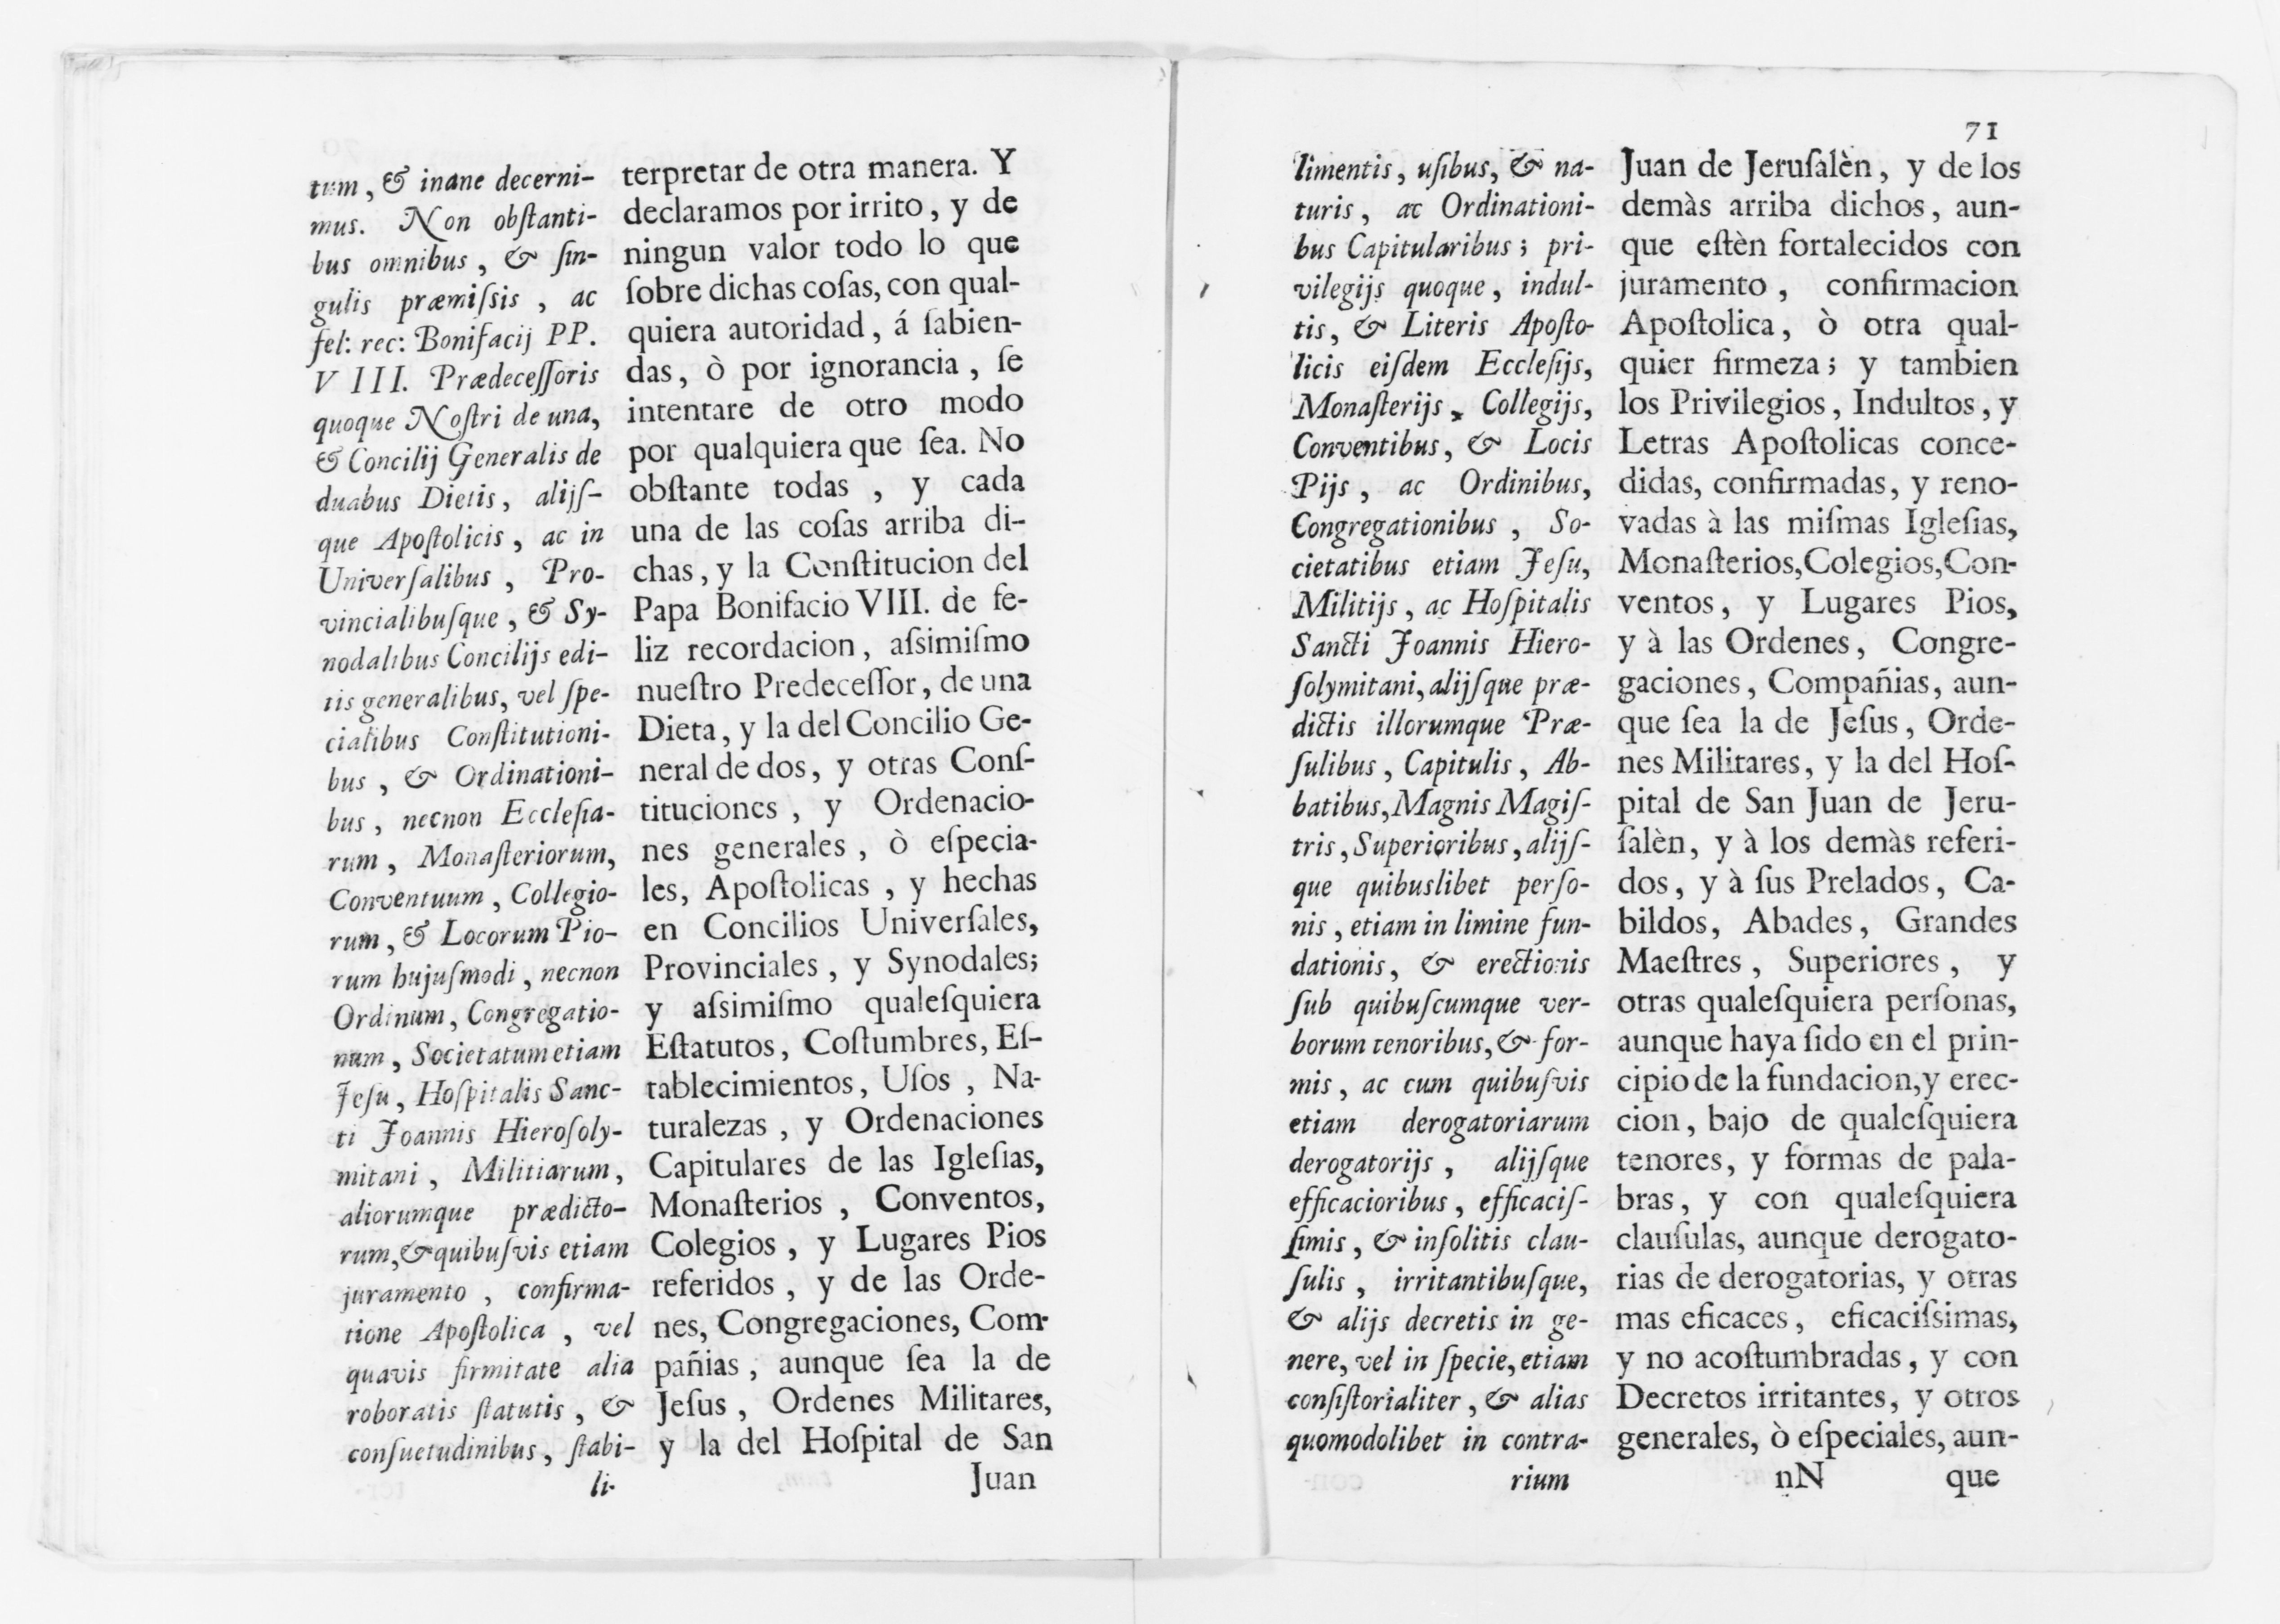 tum, & inane decerni-
mus. Non obſtanti-
bus omnibus, & ſin-
gulis præmiſsis, ac
fel: rec: Bonifacij PP.
VIII. Prædeceſſoris
quoque Noſtri de una,
& Concilij Generalis de
duabus Dietis, alijſ-
que Apoſtolicis, ac in
Univerſalibus, Pro-
vincialibuſque, & Sy-
nodalibus Concilijs edi-
tis generalibus, vel ſpe-
cialibus Conſtitutioni-
bus, & Ordinationi-
bus, necnon Eccleſia-
rum, Monaſteriorum,
Conventuum, Collegio-
rum, & Locorum Pio-
rum hujuſmodi, necnon
Ordinum, Congregatio-
num, Societatum etiam
Jeſu, Hoſpitalis Sanc-
ti Joannis Hieroſoly-
mitani, Militiarum,
aliorumque prædicto-
rum, & quibuſvis etiam
juramento, confirma-
tione Apoſtolica, vel
quavis firmitate alia
roboratis ſtatutis, &
conſuetudinibus, ſtabi-
li-
terpretar de otra manera. Y
declaramos por irrito, y de
ningun valor todo lo que
ſobre dichas coſas, con qual-
quiera autoridad, á ſabien-
das, ò por ignorancia, ſe
intentare de otro modo
por qualquiera que ſea. No
obſtante todas, y cada
una de las coſas arriba di-
chas, y la Conſtitucion del
Papa Bonifacio VIII. de fe-
liz recordacion, aſsimiſmo
nueſtro Predeceſſor, de una
Dieta, y la del Concilio Ge-
neral de dos, y otras Conſ-
tituciones, y Ordenacio-
nes generales, ò eſpecia-
les, Apoſtolicas, y hechas
en Concilios Univerſales,
Provinciales, y Synodales;
y aſsimiſmo qualeſquiera
Eſtatutos, Coſtumbres, Eſ-
tablecimientos, Uſos, Na-
turalezas, y Ordenaciones
Capitulares de las Igleſias,
Monaſterios, Conventos,
Colegios, y Lugares Pios
referidos, y de las Orde-
nes, Congregaciones, Com-
pañias, aunque ſea la de
Jeſus, Ordenes Militares,
y la del Hoſpital de San
Juan
71
limentis, uſibus, & na-
turis, ac Ordinationi-
bus Capitularibus; pri-
vilegijs quoque, indul-
tis, & Literis Apoſto-
licis eiſdem Eccleſijs,
Monaſterijs, Collegijs,
Conventibus, & Locis
Pijs, ac Ordinibus,
Congregationibus, So-
cietatibus etiam Jeſu,
Militijs, ac Hoſpitalis
Sancti Joannis Hiero-
ſolymitani, alijſque præ-
dictis illorumque Præ-
ſulibus, Capitulis, Ab-
batibus, Magnis Magiſ-
tris, Superioribus, alijſ-
que quibuslibet perſo-
nis, etiam in limine fun-
dationis, & erectionis
ſub quibuſcumque ver-
borum tenoribus, & for-
mis, ac cum quibuſvis
etiam derogatoriarum
derogatorijs, alijſque
efficacioribus, efficaciſ-
ſimis, & inſolitis clau-
ſulis, irritantibuſque,
& alijs decretis in ge-
nere, vel in ſpecie, etiam
conſiſtorialiter, & alias
quomodolibet in contra-
rium
Juan de Jeruſalèn, y de los
demàs arriba dichos, aun-
que eſtèn fortalecidos con
juramento, confirmacion
Apoſtolica, ò otra qual-
quier firmeza; y tambien
los Privilegios, Indultos, y
Letras Apoſtolicas conce-
didas, confirmadas, y reno-
vadas à las miſmas Igleſias,
Monaſterios, Colegios, Con-
ventos, y Lugares Pios,
y à las Ordenes, Congre-
gaciones, Compañias, aun-
que ſea la de Jeſus, Orde-
nes Militares, y la del Hoſ-
pital de San Juan de Jeru-
ſalèn, y à los demàs referi-
dos, y à ſus Prelados, Ca-
bildos, Abades, Grandes
Maeſtres, Superiores, y
otras qualeſquiera perſonas,
aunque haya ſido en el prin-
cipio de la fundacion, y erec-
cion, bajo de qualeſquiera
tenores, y formas de pala-
bras, y con qualeſquiera
clauſulas, aunque derogato-
rias de derogatorias, y otras
mas eficaces, eficaciſsimas,
y no acoſtumbradas, y con
Decretos irritantes, y otros
generales, ò eſpeciales, aun-
nN que